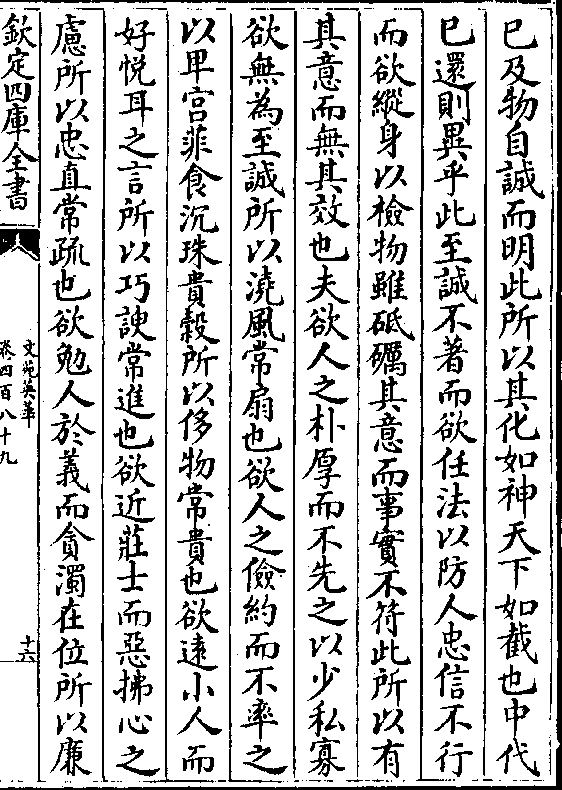 已及物自誠而明此所以其化如神天下如截也中代
已還則異乎此至誠不著而欲任法以防人忠信不行
而欲縱身以檢物雖砥礪其意而事實不符此所以有
其意而無其效也夫欲人之朴厚而不先之以少私寡
欲無為至誠所以澆風常扇也欲人之儉約而不率之
以卑宫菲食沉珠貴穀所以侈物常貴也欲逺小人而
好悦耳之言所以巧諛常進也欲近莊士而惡拂心之
慮所以忠直常疏也欲勉人於義而貪濁在位所以廉
欽定四庫全書
文苑英華
卷四百八十九
十六